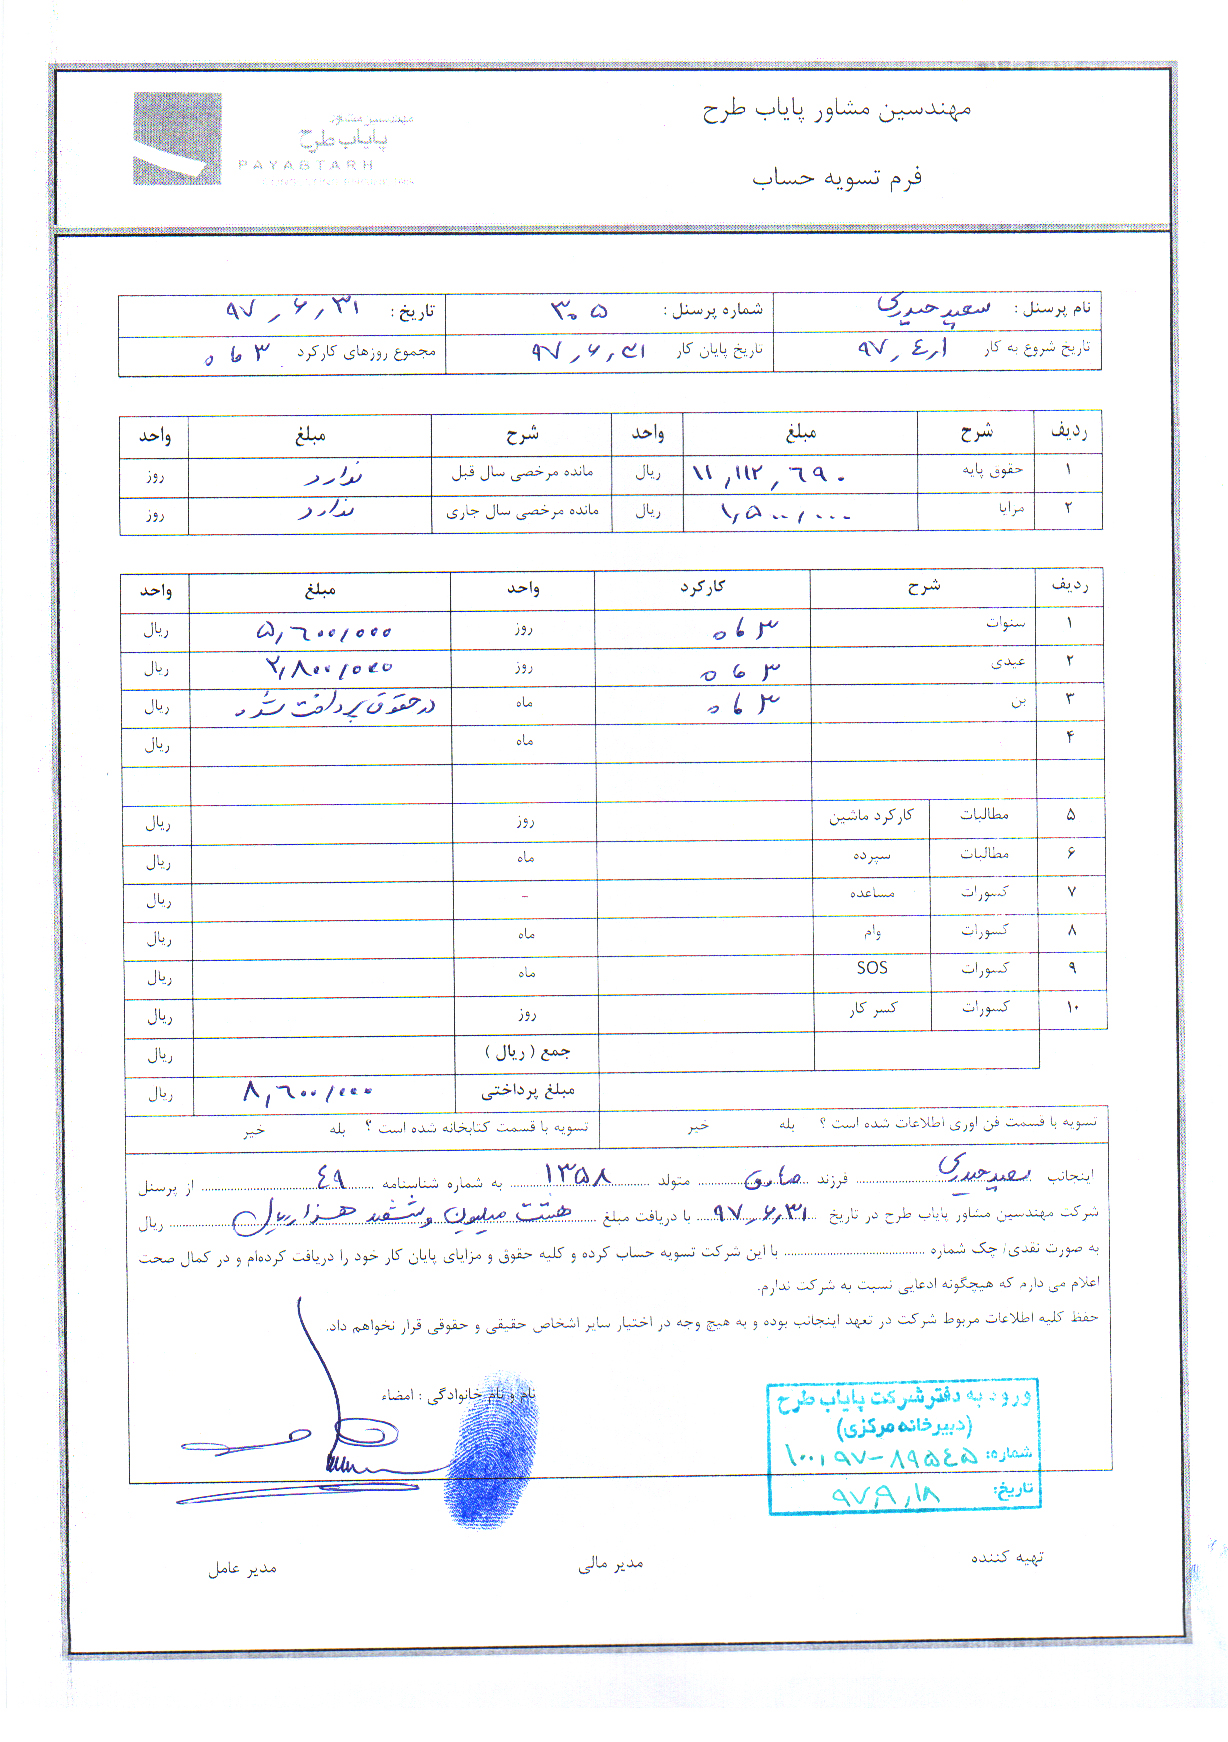 مهندسین مشاور پایاب طرح
فرم تسویه حساب
مهندسین مشاور
پایاب طرح
PAYABTARH
نام پرسنل : سعید حیدری شماره پرسنل : ۳۰۵ تاریخ : ۹۷٫۶٫۳۱
تاریخ شروع به کار ۹۷٫۴٫۱ تاریخ پایان کار ۹۷٫۶٫۳۱ مجموع روزهای کارکرد ۳ ماه
ردیف شرح مبلغ واحد شرح مبلغ واحد
۱ حقوق پایه ۱۱٫۱۱۲٫۶۹۰ ریال مانده مرخصی سال قبل ندارد روز
۲ مزایا ۱٫۵۰۰٫۰۰۰ ریال مانده مرخصی سال جاری ندارد روز
ردیف شرح کارکرد واحد مبلغ واحد
۱ سنوات ۳ ماه روز ۵٫۶۰۰٫۰۰۰ ریال
۲ عیدی ۳ ماه روز ۲٫۸۰۰٫۰۰۰ ریال
۳ بن ۳ ماه ماه در حقوق پرداخت شد. ریال
۴ ماه ریال
۵ مطالبات کارکرد ماشین روز ریال
۶ مطالبات سپرده ماه ریال
۷ کسورات مساعده - ریال
۸ کسورات وام ماه ریال
۹ کسورات SOS ماه ریال
۱۰ کسورات کسر کار روز ریال
جمع ( ریال ) ریال
مبلغ پرداختی ۸٫۶۰۰٫۰۰۰ ریال
تسویه با قسمت فن اوری اطلاعات شده است ؟ بله خیر تسویه با قسمت کتابخانه شده است ؟ بله خیر
اینجانب سعید حیدری فرزند صادق متولد ۱۳۵۸ به شماره شناسنامه ۴۹ از پرسنل
شرکت مهندسین مشاور پایاب طرح در تاریخ ۹۷٫۶٫۳۱ با دریافت مبلغ هشت میلیون و ششصد هزار ریال ریال
به صورت نقدی/ چک شماره با این شرکت تسویه حساب کرده و کلیه حقوق و مزایای پایان کار خود را دریافت کرده‌ام و در کمال صحت
اعلام می دارم که هیچگونه ادعایی نسبت به شرکت ندارم.
حفظ کلیه اطلاعات مربوط شرکت در تعهد اینجانب بوده و به هیچ وجه در اختیار سایر اشخاص حقیقی و حقوقی قرار نخواهم داد.
نام و نام خانوادگی : امضاء
ورود به دفتر شرکت پایاب طرح
(دبیرخانه مرکزی)
شماره: ۱۰۰٫۹۷-۸۹۵۴۵
تاریخ: ۹۷٫۹٫۱۸
تهیه کننده مدیر مالی مدیر عامل